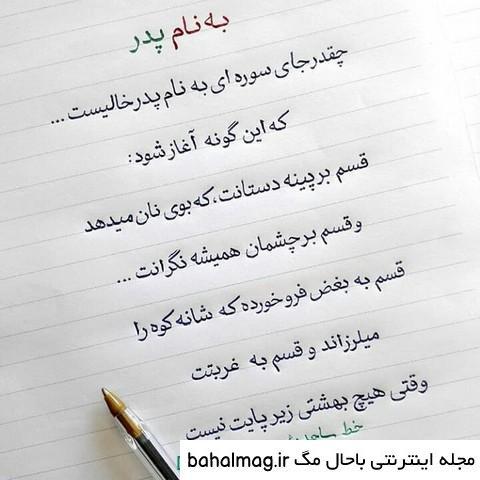 به نام پدر
چقدر جای سوره ای به نام پدر خالیست ...
که این گونه آغاز شود:
قسم بر پینه دستانت، که بوی نان میدهد
و قسم بر چشمان همیشه نگرانت ...
قسم به بغض فروخورده که شانه کوه را
میلرزاند و قسم به غربتت
وقتی هیچ بهشتی زیر پایت نیست
خط
مجله اینترنتی باحال مگ bahalmag.ir